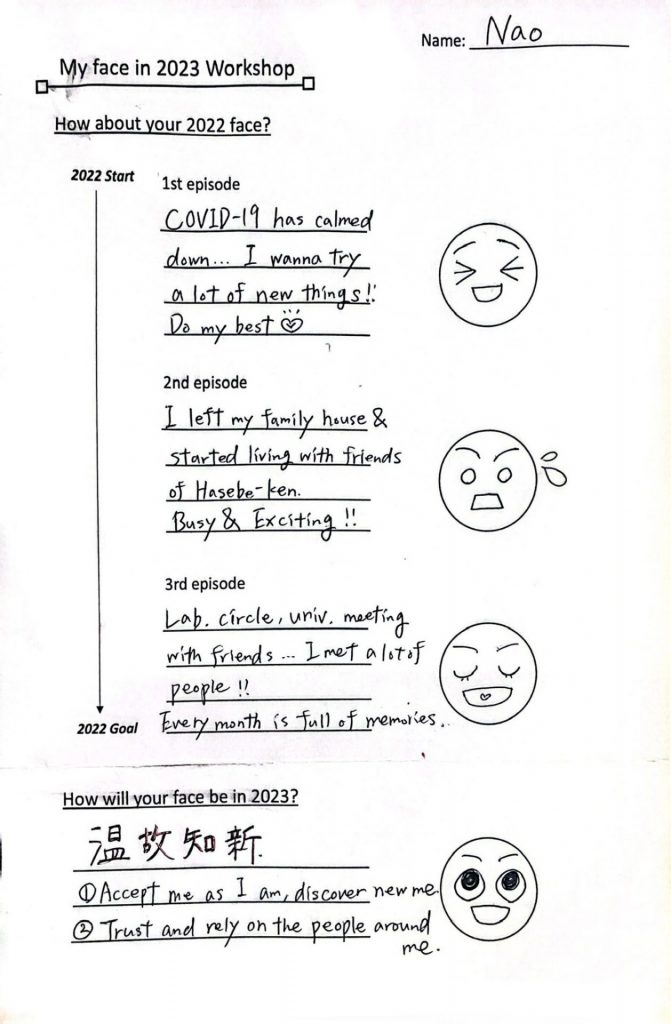 Name: Nao
My face in 2023 Workshop
How about your 2022 face?
2022 Start
1st episode
COVID-19 has calmed
down... I wanna try
a lot of new things!!
Do my best
2nd episode
I left my family house &
started living with friends
of Hasebe-ken.
Busy & Exciting !!
3rd episode
Lab. circle, univ. meeting
with friends ... I met a lot of
people !!
Every month is full of memories.
2022 Goal
How will your face be in 2023?
温故知新.
① Accept me as I am, discover new me.
② Trust and rely on the people around
me.